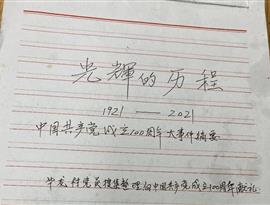 光輝的历程
1921 — 2021
中国共产党成立100周年大事件摘要
党员搜集整理向中国共产党成立100周年献礼